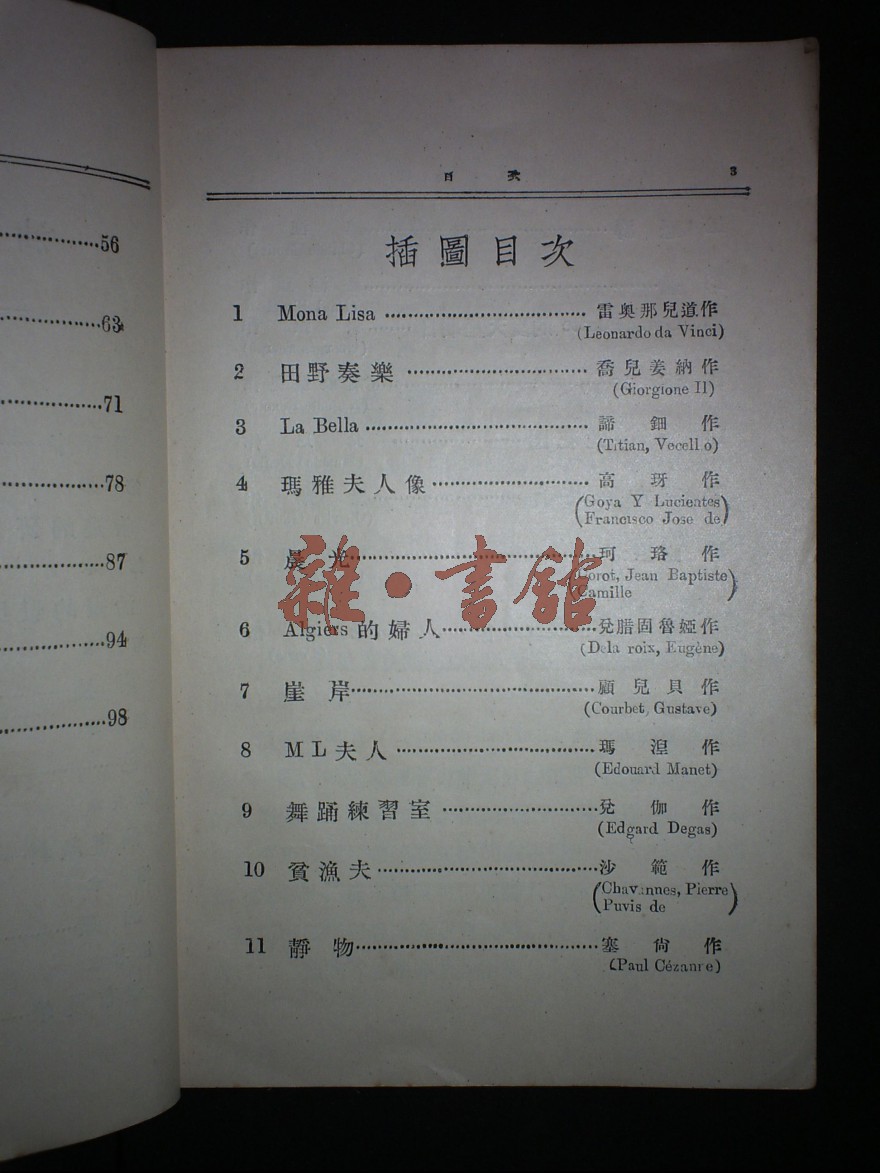 56
63
71
78
87
94
98
目 次 3
插圖目次
1 Mona Lisa 雷奧那兒道作
(Leonardo da Vinci)
2 田野奏樂 喬兒姜納作
(Giorgione II)
3 La Bella 諦鈿作
(Titian, Vecello)
4 瑪雅夫人像 高玡作
(Goya Y Lucientes
Francisco Jose de)
5 晨光 珂珞作
(Corot, Jean Baptiste
Camille)
6 Algiers 的婦人 兌腊固魯婭作
(Dela roix, Eugène)
7 崖岸 顧兒貝作
(Courbet, Gustave)
8 M L 夫人 瑪湼作
(Edouard Manet)
9 舞踊練習室 兌伽作
(Edgard Degas)
10 貧漁夫 沙範作
(Chavannes, Pierre
Puvis de)
11 靜物 塞尙作
(Paul Cézanne)
雜·書館